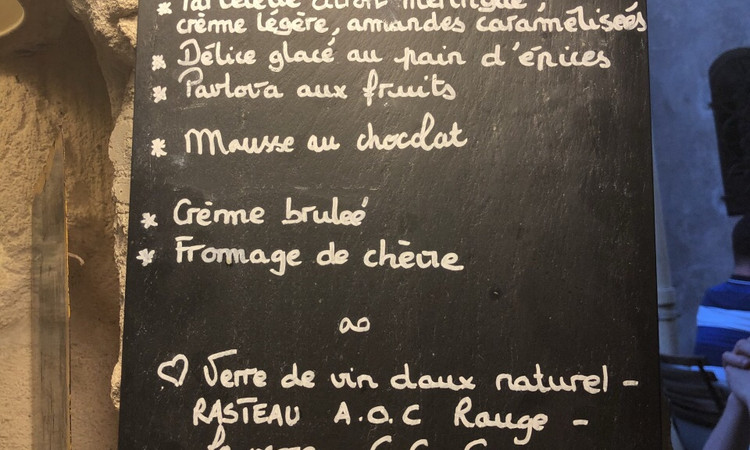 * Tartelette citron meringué,
crème légère, amandes caramélisées
* Délice glacé au pain d'épices
* Pavlova aux fruits
* Mousse au chocolat
* Crème bruleé
* Fromage de chèvre
♡ Verre de vin doux naturel -
RASTEAU A.O.C Rouge -